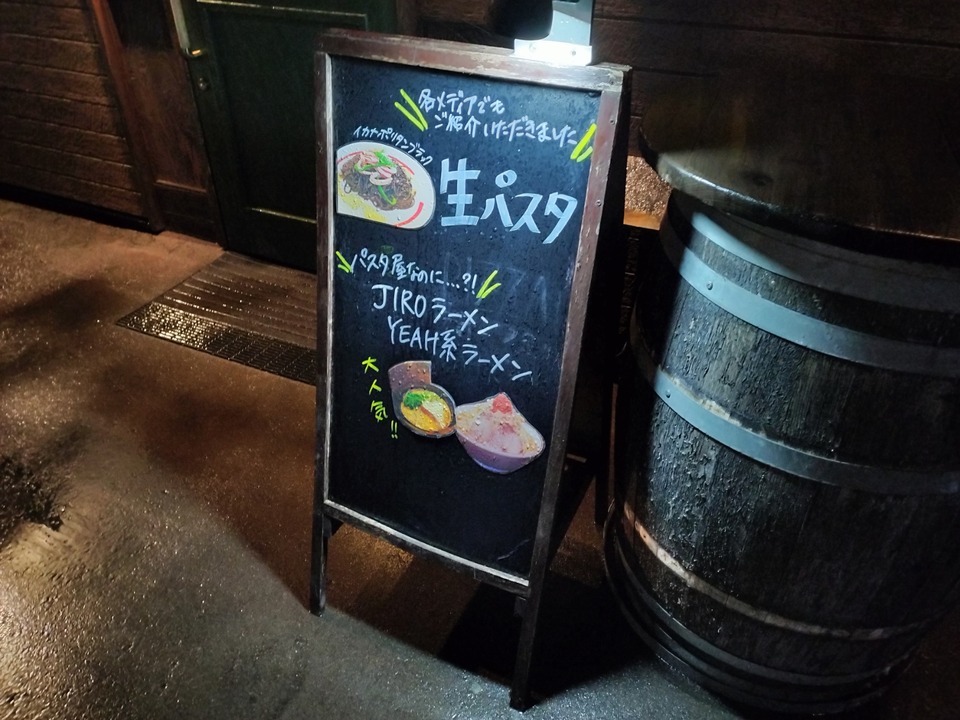 各メディアでも
ご紹介いただきました
イカナポリタンブラック
生パスタ
パスタ屋なのに...?!
JIROラーメン
YEAH系ラーメン
大人気!!